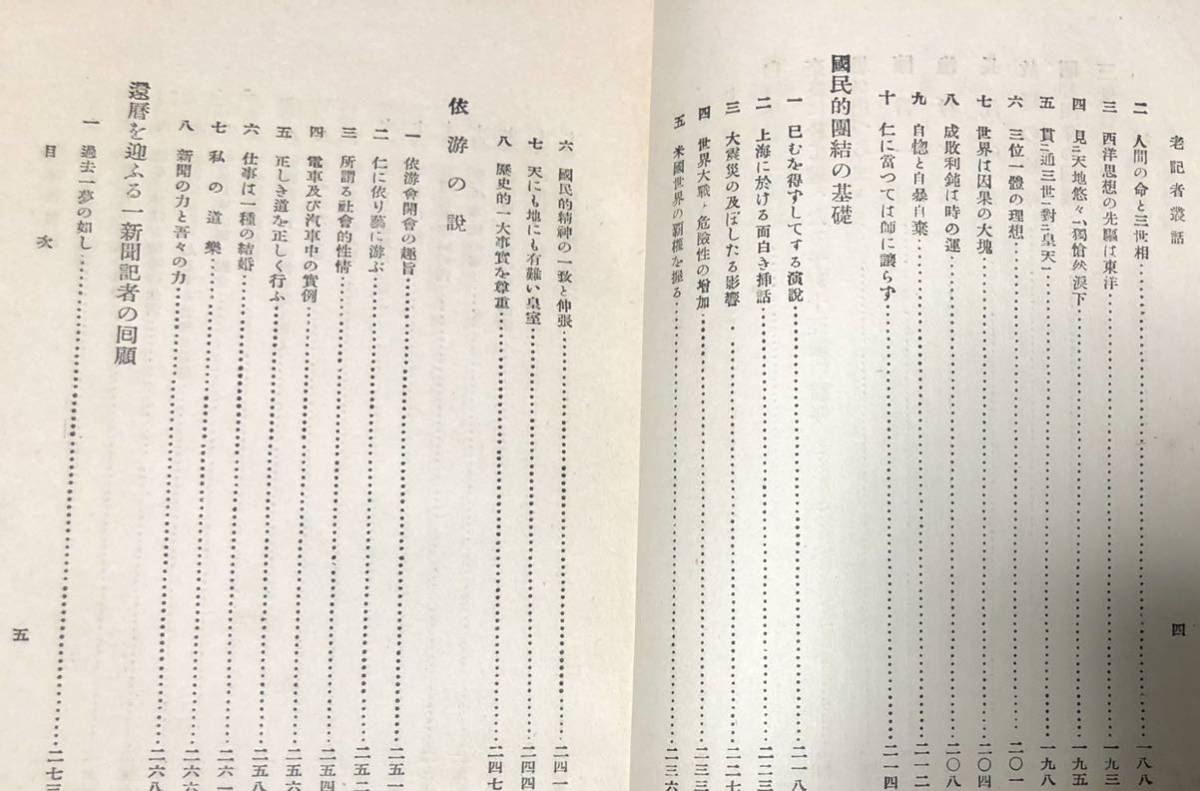 老記者叢話
二 人間の命と三世相………一八八
三 西洋思想の先驅は東洋………一九三
四 見二天地悠々一、獨愴然涙下………一九五
五 貫二通三世一對二皇天一………一九八
六 三位一體の理想………二〇一
七 世界は因果の大塊………二〇四
八 成敗利鈍は時の運………二〇八
九 自惚と自暴自棄………二一二
十 仁に當つては師に讓らず………二一四
國民的團結の基礎
一 已むを得ずしてする演說………二一八
二 上海に於ける面白き揷話………二二三
三 大震災の及ぼしたる影響………二二七
四 世界大戰と危險性の增加………二三三
五 米國世界の覇權を握る………二三六
四
六 國民的精神の一致と伸張………二四一
七 天にも地にも有難い皇室………二四四
八 歷史的一大事實を尊重………二四七
依游の說
一 依游會開會の趣旨………二五一
二 仁に依り藝に游ぶ………二五一
三 所謂る社會的性情………二五二
四 電車及び汽車中の實例………二五四
五 正しき道を正しく行ふ………二五六
六 仕事は一種の結婚………二五八
七 私の道樂………二六一
八 新聞の力と吾々の力………二六六
還曆を迎ふる一新聞記者の回顧………二六八
一 過去一夢の如し………二七三
目次
五